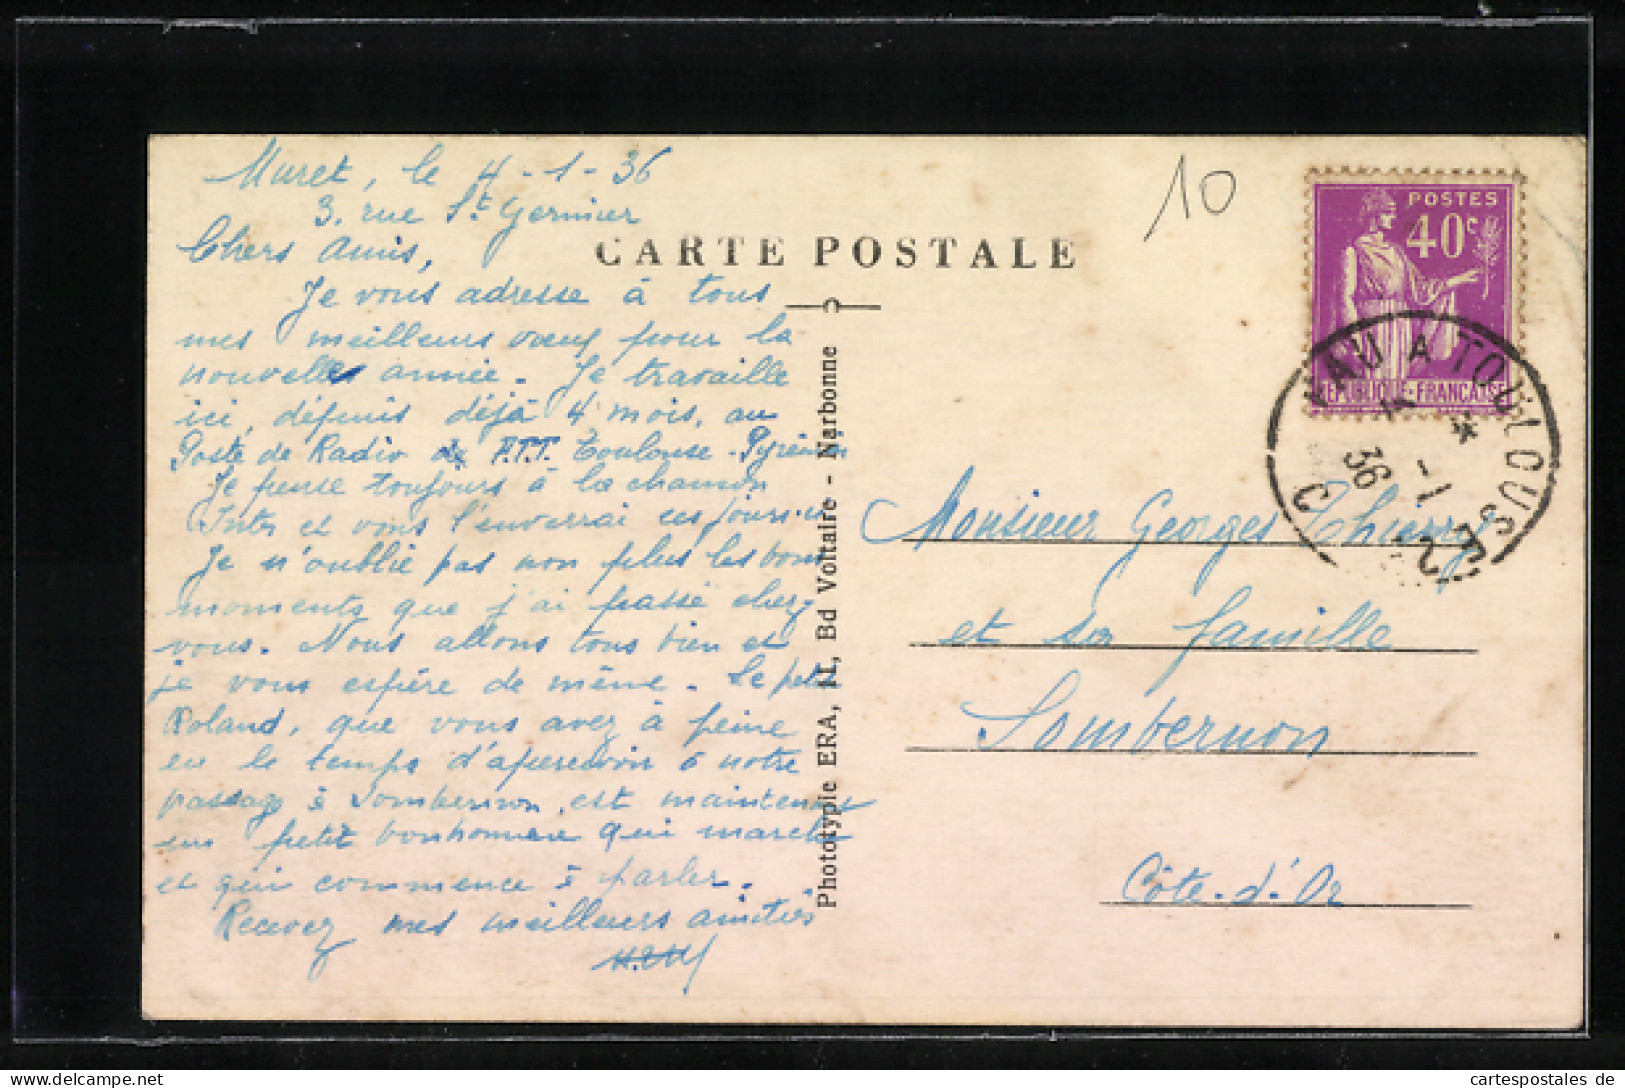 Muret, le 4-1-36
3. rue St Germier
Chers Amis,
Je vous adresse à tous
mes meilleurs vœux pour la
nouvelles année. Je travaille
ici, depuis déjà 4 mois, au
Poste de Radio de P.T.T. Toulouse-Pyrénées
Je pense toujours à la chanson
et vous l'enverrai ces jours-ci
Je n'oublie pas non plus les bons
moments que j'ai passé chez
vous. Nous allons tous bien et
je vous espère de même. Le petit
Roland, que vous avez à peine
eu le temps d'apercevoir à notre
passage à Sombernon, est maintenant
un petit bonhomme qui marche
et qui commence à parler.
Recevez mes meilleurs amitiés
CARTE POSTALE
Phototypie ERA, 11, Bd Voltaire - Narbonne
10
POSTES
40c
REPUBLIQUE-FRANÇAISE
A TOULOUSE
4 -1
36
Monsieur Georges Thierry
et sa famille
Sombernon
Côte-d'Or
cartespostales de